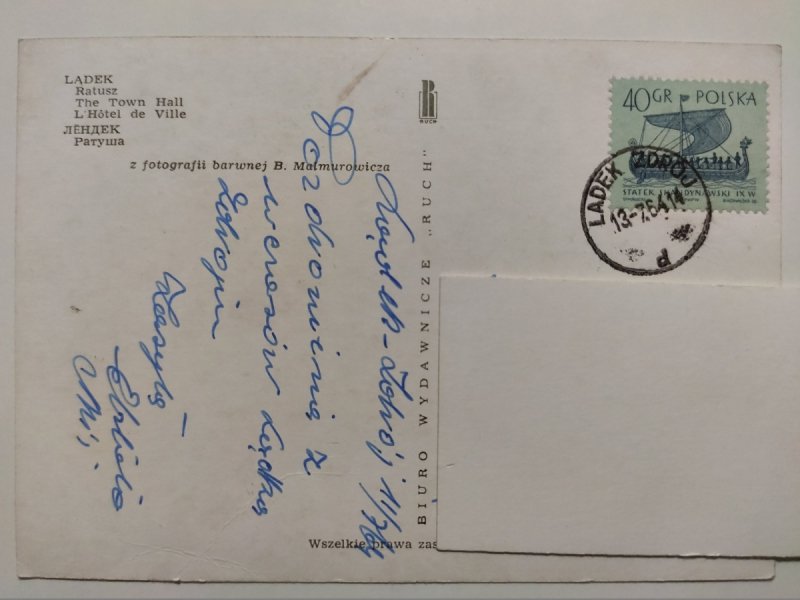 LĄDEK
Ratusz
The Town Hall
L'Hôtel de Ville
ЛЁНДЕК
Ратуша
z fotografii barwnej B. Malmurowicza
RUCH
BIURO WYDAWNICZE „RUCH"
Wszelkie prawa zas
40 GR POLSKA
STATEK SKANDYNAWSKI IX W
LĄDEK ZDRÓJ
13-7.64.14
Lądek-Zdrój 11/7 64
Pozdrowienia z
wczasów
Zdroju
Zasyła
Elżbieta